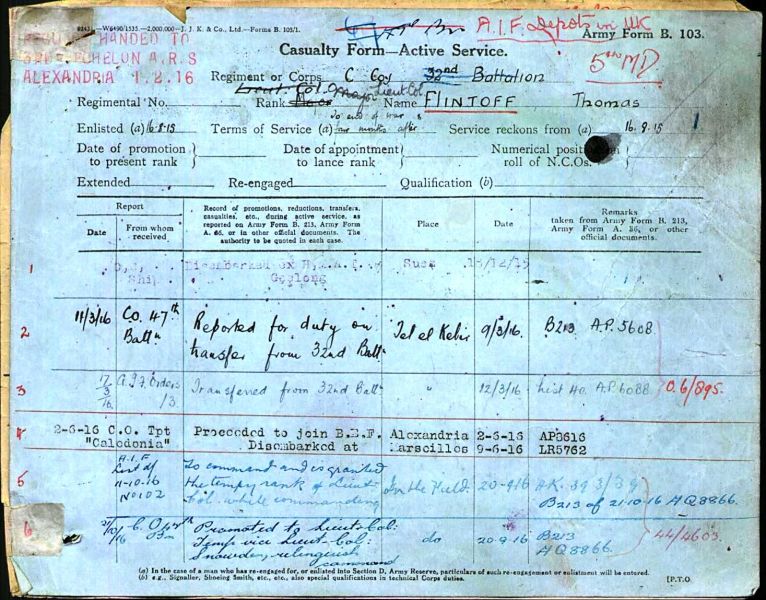 8243—W6490/1535.—2,000,000—J. J. K. & Co., Ltd.—Forms B. 103/1.
A.I.F. Depots in UK
Army Form B. 103.
HANDED TO
ECHELON A.R.S
ALEXANDRIA 1.2.16
Casualty Form—Active Service.
5th MD
Regiment or Corps C Coy 32nd Battalion
Lieut. Col.
Regimental No. Rank Major Lieut Col Name FLINTOFF Thomas
To end of war &
Enlisted (a) 16.8.15 Terms of Service (a) months after Service reckons from (a) 16.8.15
Date of promotion to present rank
Date of appointment to lance rank
Numerical position on roll of N.C.Os.
Extended Re-engaged Qualification (b)
Report
Date
From whom received
Record of promotions, reductions, transfers, casualties, etc., during active service, as reported on Army Form B. 213, Army Form A. 36, or in other official documents. The authority to be quoted in each case.
Place
Date
Remarks
taken from Army Form B. 213, Army Form A. 36, or other official documents.
1 Ship Disembarked ex H.M.A.T. Geelong Suez 18/12/15
2 11/3/16 C.O. 47th Battn Reported for duty on transfer from 32nd Battn Tel el Kebir 9/3/16. B213 A.P. 5608
3 17/3/16 A.I.F Orders /3. Transferred from 32nd Battn " 12/3/16 List 40. A.P. 6088 O.6/895.
4 2-6-16 C.O. Tpt "Caledonia" Proceeded to join B.E.F. Alexandria 2-6-16 AP3616
Disembarked at Marseilles 9-6-16 LR5762
5 A.I.F List of 11-10-16 No 102 To command and is granted the tempy rank of Lieut Col. while commanding In the Field. 20-9-16 A.K. 393/39
B213 of 21-10-16 AQ8866.
6 21/10/16 C.O. 47th Bn Promoted to Lieut-Col: Temp vice Lieut-Col: Snowden, relinquish command do 20-9-16 B213 AQ8866. 44/4603.
(a) In the case of a man who has re-engaged for, or enlisted into Section D, Army Reserve, particulars of such re-engagement or enlistment will be entered.
(b) e.g., Signaller, Shoeing Smith, etc., etc., also special qualifications in technical Corps duties.
[P.T.O.